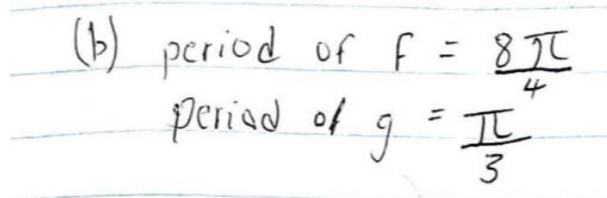 (b) period of f = 8π/4
period of g = π/3